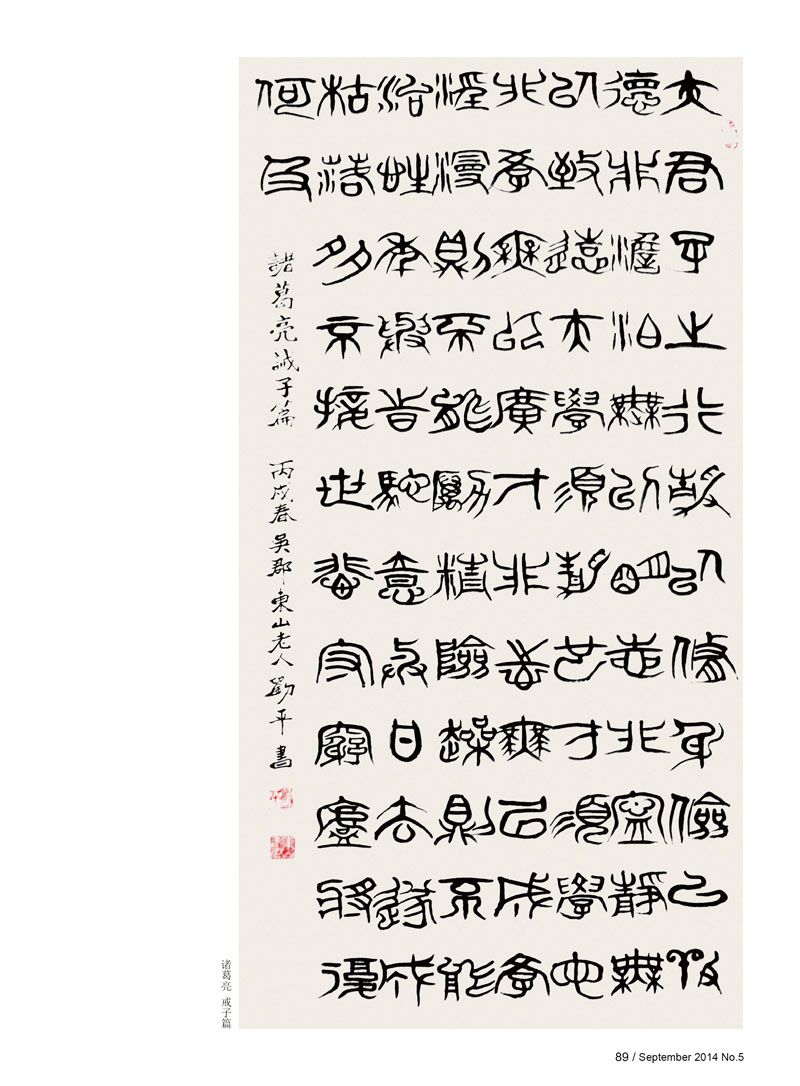 夫君子之行靜以修身儉以養
德非澹泊無以明志非寧靜無
以致遠夫學須靜也才須學也
非學無以廣才非志無以成學
淫漫則不能勵精險躁則不能
治性年與時馳意與日去遂成
枯落多不接世悲守窮廬將復
何及
諸葛亮誡子篇 丙戌春吳郡東山老人平書
诸葛亮 戒子篇
89 / September 2014 No.5